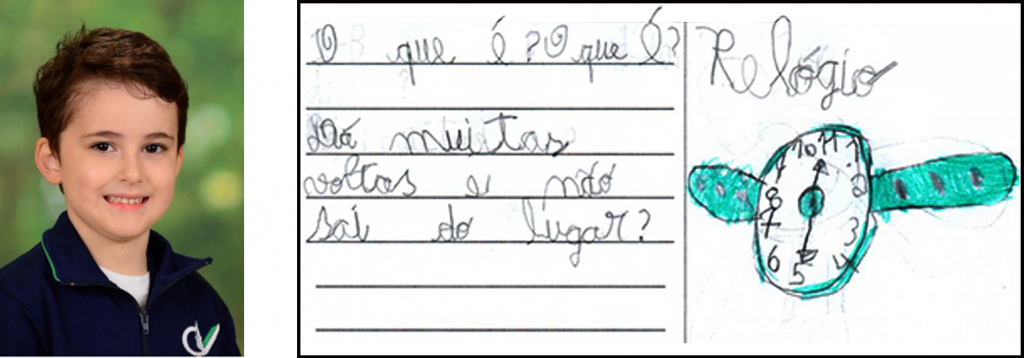 O que é? O que é?
Dá muitas
voltas e não
sai do lugar?
Relógio
10 11 1
9 2
8
7 3
6 5 4